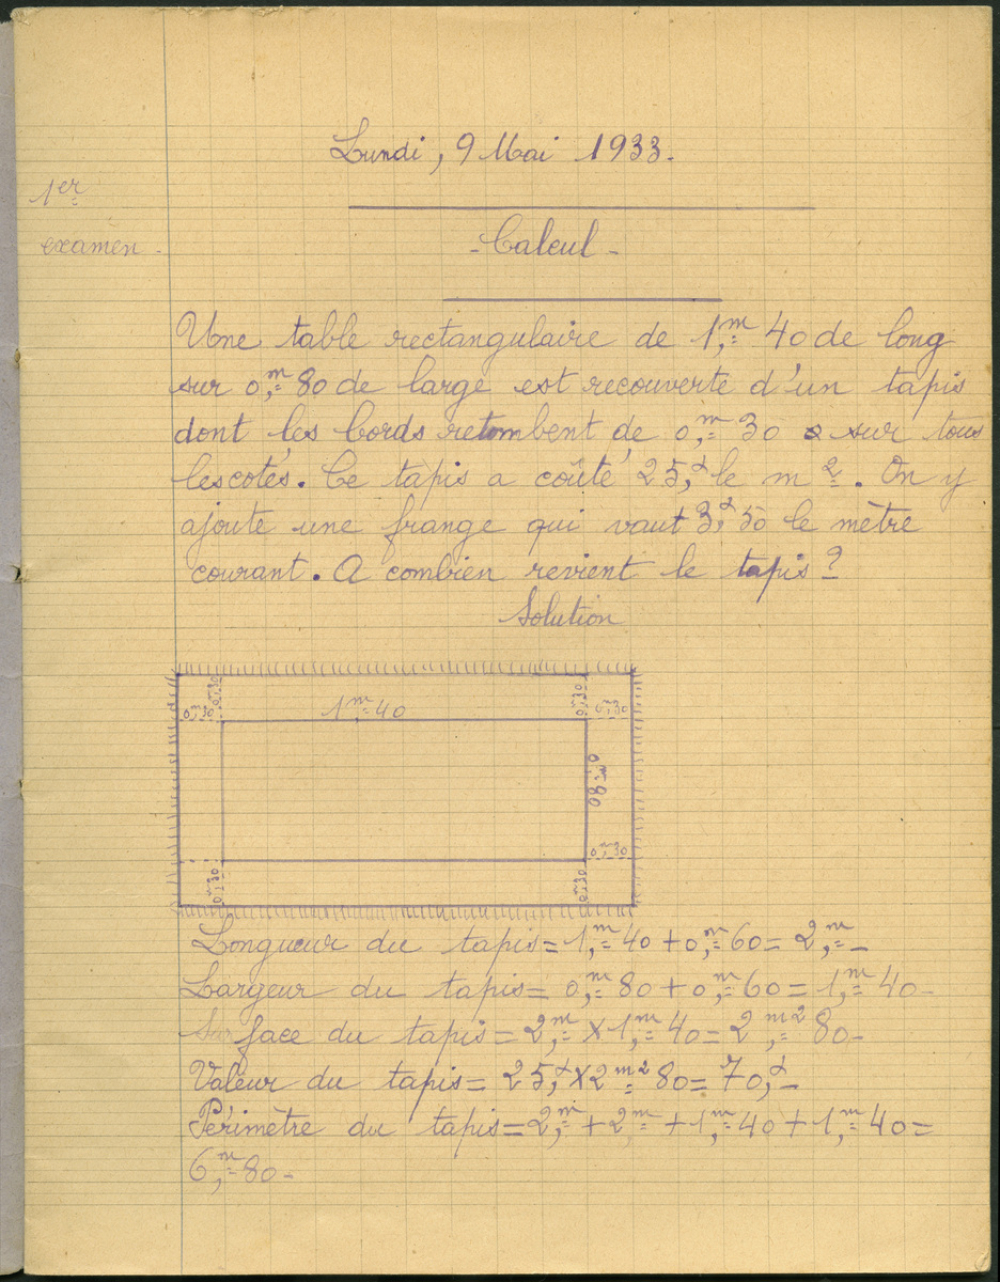 Lundi, 9 Mai 1933.
1er
examen -
- Calcul -
Une table rectangulaire de 1,m 40 de long
sur 0,m 80 de large est recouverte d'un tapis
dont les bords retombent de 0,m 30 sur tous
les cotés. Ce tapis a coûté 25,f le m2. On y
ajoute une frange qui vaut 3,f 50 le mètre
courant. A combien revient le tapis ?
Solution
0,m30 0,m30 1m40 0,m30 0,m30
0,m80
0,m30 0,m30 0,m30
Longueur du tapis = 1,m 40 + 0,m 60 = 2,m -
Largeur du tapis = 0,m 80 + 0,m 60 = 1,m 40 -
Surface du tapis = 2,m X 1,m 40 = 2,m2 80 -
Valeur du tapis = 25,f X 2m2 80 = 70,f -
Périmètre du tapis = 2,m + 2m + 1,m 40 + 1,m 40 =
6,m 80 -